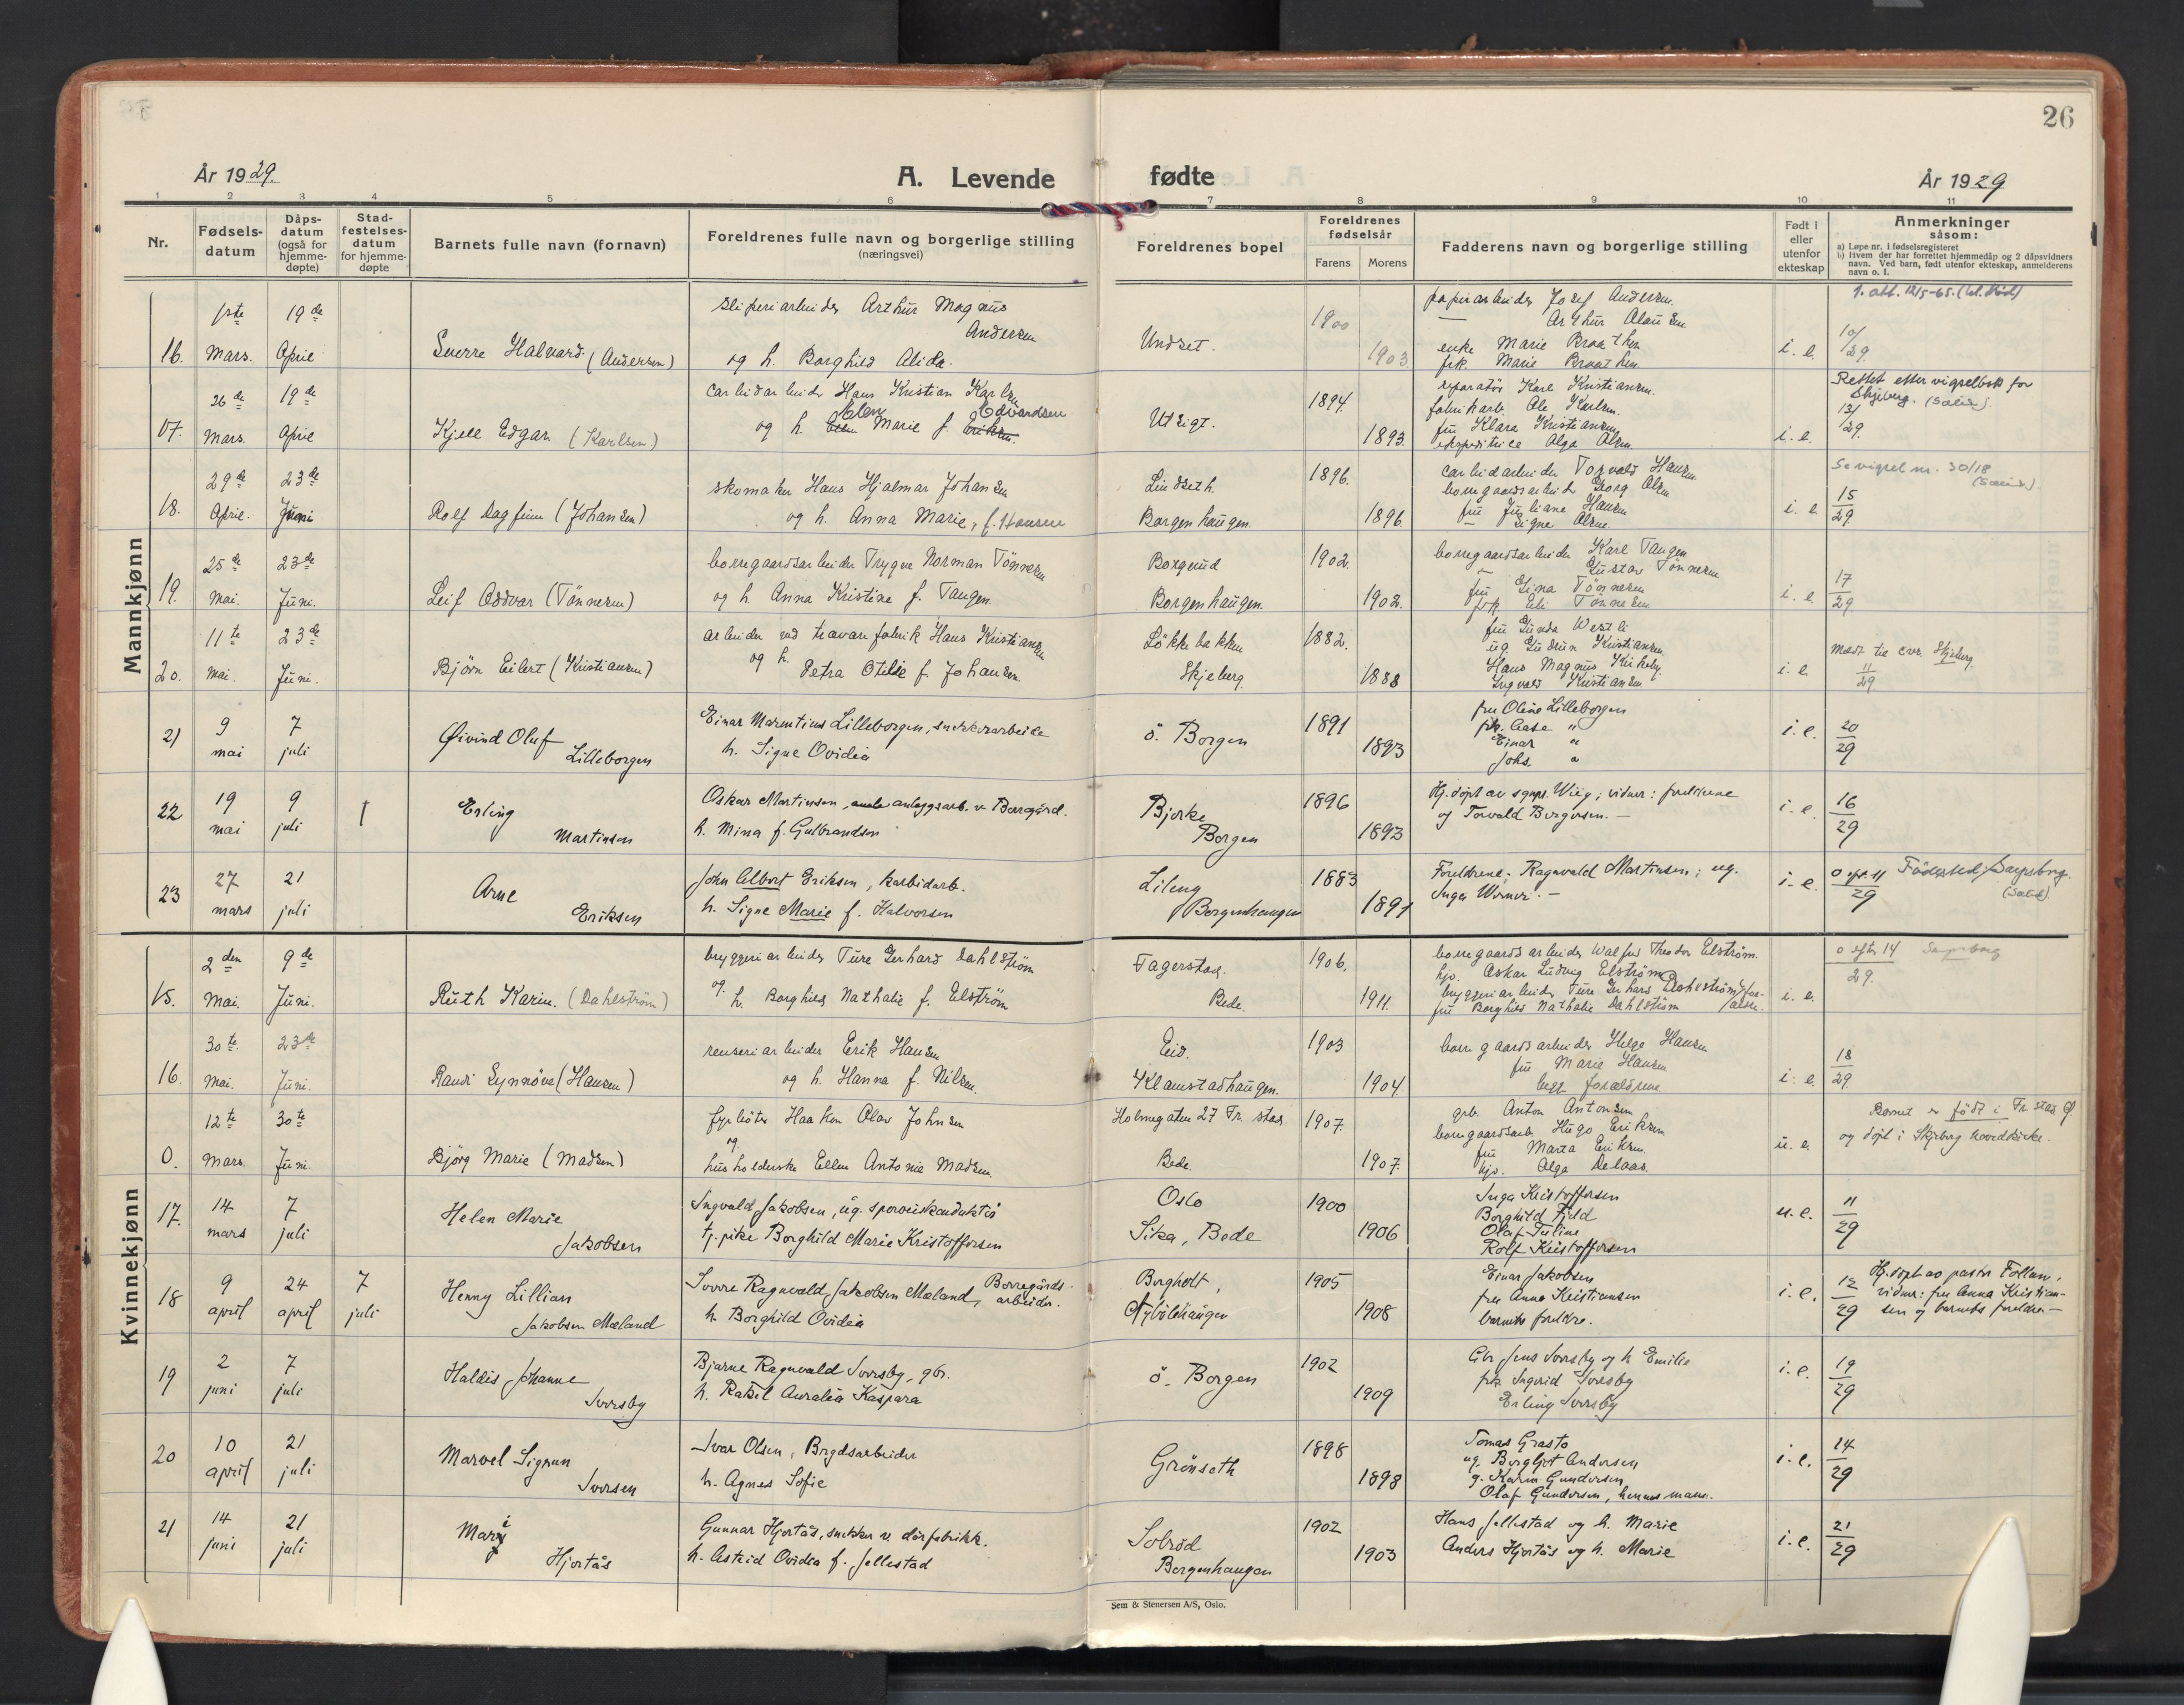 26
År 1929.
A. Levende
fødte
År 1929
1 2 3 4 5 6 7 8 9 10 11
Nr.
Fødsels-
datum
Dåps-
datum
(også for
hjemme-
døpte)
Stad-
festelses-
datum
for hjemme-
døpte
Barnets fulle navn (fornavn)
Foreldrenes fulle navn og borgerlige stilling
(næringsvei)
Foreldrenes bopel
Foreldrenes
fødselsår
Farens Morens
Fadderens navn og borgerlige stilling
Født i
eller
utenfor
ekteskap
Anmerkninger
såsom:
a) Løpe nr. i fødselsregisteret
b) Hvem der har forrettet hjemmedåp og 2 dåpsvidners
navn. Ved barn, født utenfor ekteskap, anmelderens
navn o. l.
Mannkjønn
16. 1ste Mars. 19de April
Sverre Halvard. (Andersen)
sliperiarbeider Arthur Magnus
Andersen
og h. Borghild Alida.
Undset.
1900
1903
papirarbeider Josef Andersen.
— Arthur Olausen
enke Marie Braathen
frk. Marie Braathen.
i. e.
1. att. 12/5-65.
10/29.
17. 26de Mars. 19de April
Kjell Edgar (Karlsen)
carbidarbeider Hans Kristian Karlsen
Elen Edvardsen
og h. Marie f. Eriksen.
Utsigt.
1894.
1893.
reparatør Karl Kristiansen.
fabrikarb. Ole Karlsen.
fru Klara Kristiansen
ekspeditrice Olga Olsen.
i. e.
Rettet etter vigselbok for
Skjeberg.
13/29.
18. 29de April. 23de Juni
Rolf Dagfinn (Johansen)
skomaker Hans Hjalmar Johansen
og h. Anna Marie, f. Hansen
Lindseth.
Borgenhaugen.
1896.
1896.
carbidarbeider Torvald Hansen
borregaardsarbeid. Georg Olsen
fru Juliane Hansen
— Signe Olsen.
i. e.
Se vigsel nr. 30/18
15/29.
19. 25de Mai. 23de Juni.
Leif Oddvar (Tönnesen)
borregaardsarbeider Trygve Norman Tönnesen
og h. Anna Kristine f. Tangen.
Borgenhaugen.
1902.
1902.
borregaardsarbeider Karl Tangen
— Gustav Tönnesen
fru Lina Tönnesen
frk Elli Tönnesen
i. e.
17/29
20. 11te Mai. 23de Juni.
Björn Eilert (Kristiansen)
arbeider ved travarefabrik Hans Kristiansen
og h.
Petra Otilde f. Johansen.
Lökkebakken
Skjeberg.
1882.
1888
fru Gunda Westli
ug. Gudrun Kristiansen.
Hans Magnus Kirkeby.
Ingvald Kristiansen
i. e.
Skjeberg.
11/29
21 9 mai 7 juli
Øivind Oluf
Lilleborgen
Einar Marentius Lilleborgen, snekkerarbeide
h. Signe Ovidia
ö. Borgen
1891
1893
fru Oline Lilleborgen
frk. Aase "
Einar "
Johs. "
i. e.
20/29
22 19 mai 9 juli 1
Erling
Martinsen
Oskar Martinsen, anleggsarb. v. Borregård.
h. Mina f. Gulbrandsen
Bjerke
Borgen
1896
1893
Hj. döpt av sgpr. Wiig; vidner: foreldrene
og Torvald Borgersen. —
i. e.
16/29
23 27 mars 21 juli
Arne
Eriksen
John Albert Eriksen, karbidarb.
h. Signe Marie f. Halvorsen
Lileng
Borgenhaugen
1883
1891
Foreldrene. Ragnvald Martinsen; ug.
Inga Werner. —
i. e.
29
Födested: Sarpsborg.
Kvinnekjønn
15. 2den Mai. 9de Juni.
Ruth Karin. (Dahlström)
bryggeriarbeider Ture Gerhard Dahlström
og h. Borghild Nathalie f. Elström
Fagerstad.
Bede.
1906.
1911.
borregaardsarbeider Walfred Theodor Elström.
hjv. Oskar Ludvig Elström
bryggeriarbeider Ture Gerhard Dahlström
fru Borghild Nathalie Dahlström
i. e.
29. Sarpsborg
16. 30te Mai. 23de Juni.
Randi Synnöve (Hansen)
renseriarbeider Erik Hansen
og h. Hanna f. Nilsen.
Eid.
Klavestadhaugen.
1903
1904.
borregaardsarbeider Helge Hansen
fru Marie Hansen
begge forældrene
i. e.
18/29
0. 12te Mars. 30te Juni.
Bjørg Marie (Madsen)
fyrböter Haakon Olav Johnsen
og
husholderske Ellen Antonie Madsen.
Holmegaten 27 Fr. stad.
Bede.
1907.
1907.
grb. Anton Antonsen
borregaardsarb. Hugo Eriksen
fru Marta Eriksen.
hjv. Olga Delaas.
u. e.
Barnet er född i Fr. stad
og döpt i Skjeberg hovedkirke.
17. 14 mars 7 juli
Helen Marie
Jakobsen
Ingvald Jakobsen, ug. sporveiskonduktör
tj. pike Borghild Marie Kristoffersen
Oslo
Sika, Bede
1900
1906
Inga Kristoffersen
Borghild Fjeld
Olaf Juline
Rolf Kristoffersen
u. e.
11/29
18 9 april 24 april 7 juli
Henny Lillian
Jakobsen Mæland
Sverre Ragnvald Jakobsen Mæland, Borregårds-
arbeider.
h. Borghild Ovidia
Borgholt,
Nybölehaugen
1905
1908
Einar Jakobsen
fru Anna Kristiansen
barnets foreldre.
i. e.
12/29
Hj. döpt av pastor Follum,
vidner: fru Anna Kristian-
sen og barnets foreldre —
19 2 juni 7 juli
Haldis Johanne
Sversby
Bjarne Ragnvald Sversby, gbr.
h. Rakel Auralia Kaspara
ö. Borgen
1902
1909
Gbr Jens Sversby og h Emilie
frk Ingrid Sversby
Erling Sversby
i. e.
19/29
20 10 april 21 juli
Marvel Sigrun
Iversen
Ivar Olsen, Brgdsarbeider
h. Agnes Sofie
Grönseth
1898
1898
Tomas Grasto
ug. Bergljot Andersen
g. Karin Gundersen
Olaf Gundersen, hennes mann.
i. e.
14/29
21 14 juni 21 juli
Mari
Hjortås
Gunnar Hjortås, snekker v. dörfabrikk.
h. Astrid Ovidia f. Jellestad
Solröd
Borgenhaugen
1902
1903
Hans Jellestad og h. Marie
Anders Hjortås og h. Marie
i. e.
21/29
Sem & Stenersen A/S, Oslo.